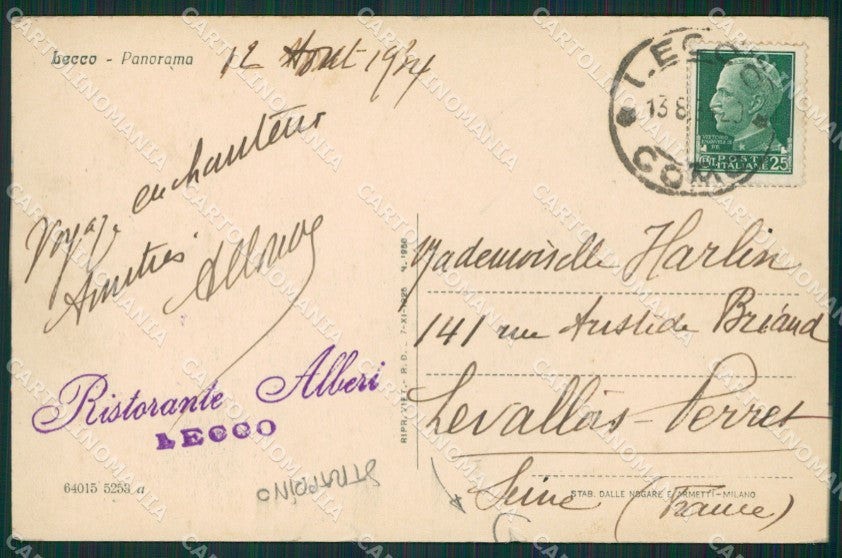 Lecco - Panorama
12 Aout 1934
Voyage enchanteur
Amitiés
Ristorante Alberi
LECCO
64015 5253 a
STRAPPINO
RIPR. VIET. - R. D. 7-XI-1926 N. 1950
LECCO
13 8
COMO
VITTORIO EMANUELE III RE
POSTE ITALIANE
CENT 25
Mademoiselle Harlin
141 rue Aristide Briand
Levallois-Perret
Seine (France)
STAB. DALLE NOGARE E ARMETTI - MILANO
CARTOLINOMANIA